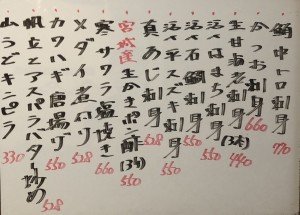 鮪中トロ刺身 770
かつお刺身 660
生甘海老刺身(3本) 440
活〆はまち刺身 550
活〆石鯛刺身 550
活〆スズキ刺身 550
真あじ刺身 528
宮城産生かきポン酢(3ヶ) 550
寒サワラ塩焼き 660
メダイ煮付 528
カワハギ唐揚げ 550
帆立とアスパラバター炒め 528
山うどキンピラ 330